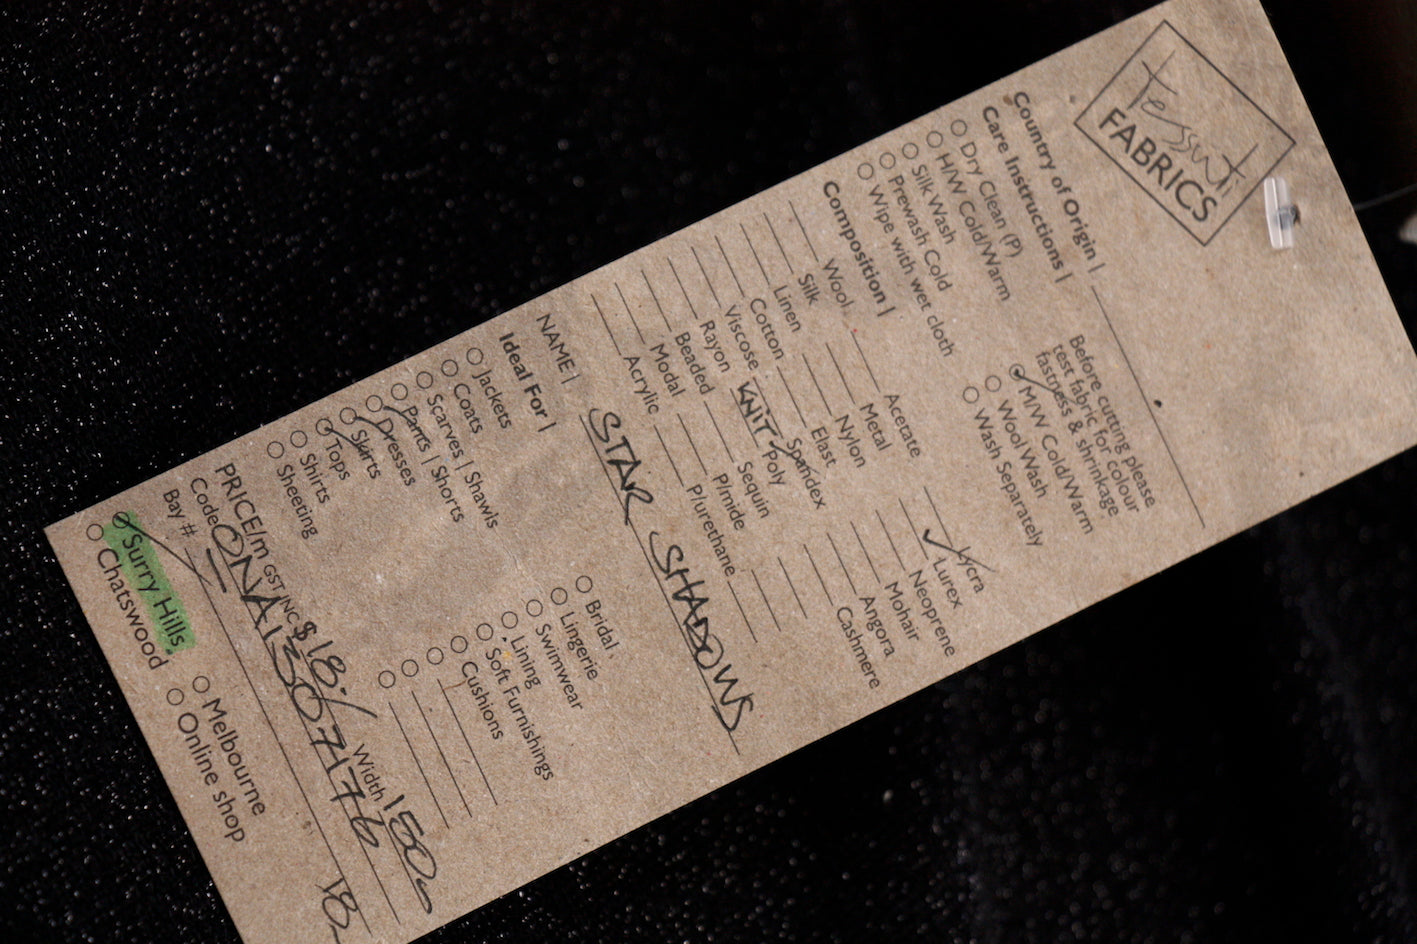 Tessuti
FABRICS
Country of Origin |
Care Instructions |
Dry Clean (P)
H/W Cold/Warm
Silk Wash
Prewash Cold
Wipe with wet cloth
Before cutting please
test fabric for colour
fastness & shrinkage
M/W Cold/Warm
Wool Wash
Wash Separately
Composition |
Wool
Silk
Linen
Cotton
Viscose
Rayon
Beaded
Modal
Acrylic
Acetate
Metal
Nylon
Elast
Spandex
KNIT Poly
Sequin
P/mide
P/urethane
Lycra
Lurex
Neoprene
Mohair
Angora
Cashmere
NAME | STAR SHADOWS
Ideal For |
Jackets
Coats
Scarves | Shawls
Pants | Shorts
Dresses
Skirts
Tops
Shirts
Sheeting
Bridal
Lingerie
Swimwear
Lining
Soft Furnishings
Cushions
PRICE/m GST INC $18./ Width 150
Code
Bay # 18
Surry Hills
Chatswood
Melbourne
Online shop